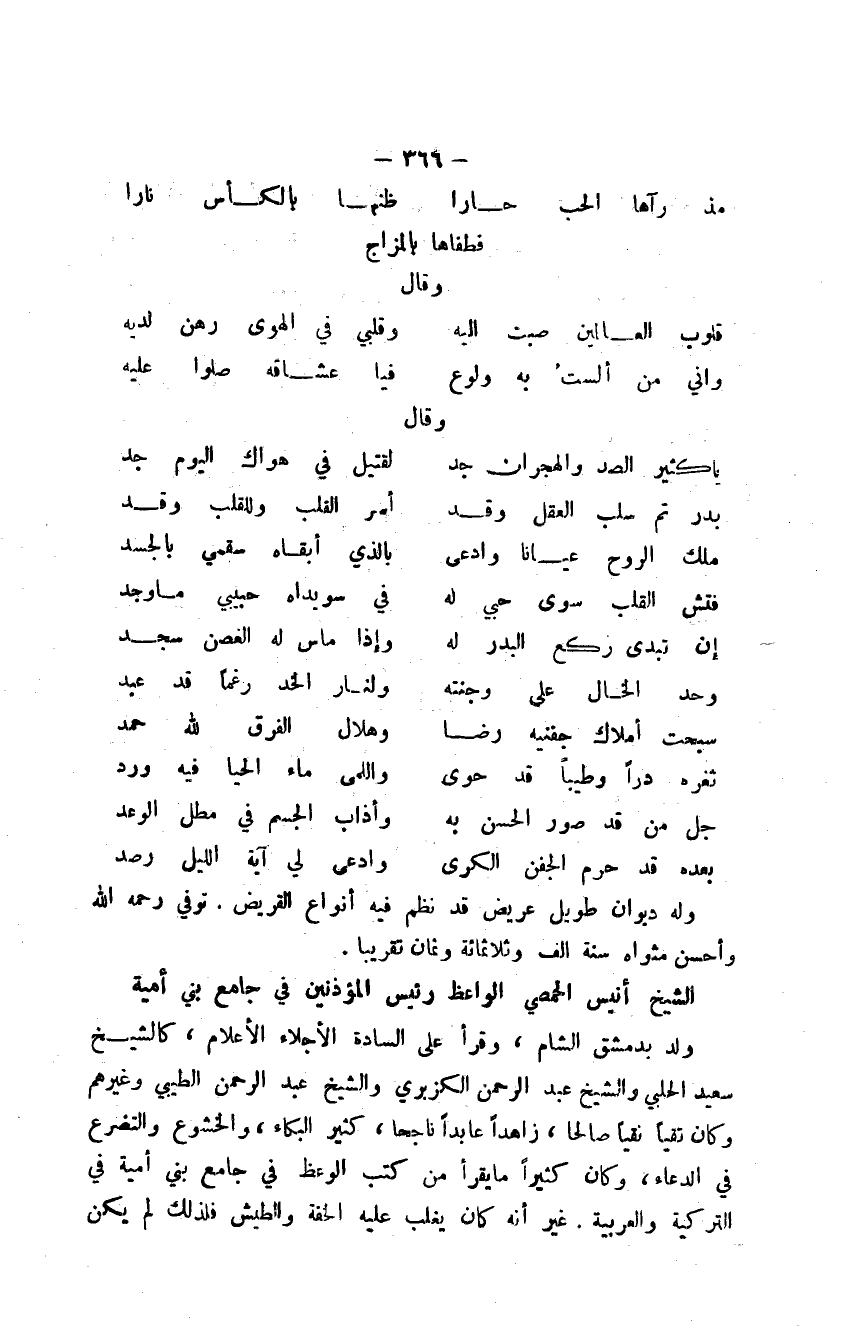 – ٣٦٦ –
مذ رآها الحب حارا ظنها بالكأس نارا
فطفاها بالمزاج
وقال
قلوب العالمين صبت اليه وقلبي في الهوى رهن لديه
واني من ألست به ولوع فيا عشاقه صلوا عليه
وقال
ياكثير الصد والهجران جد لقتيل في هواك اليوم جد
بدر تم سلب العقل وقد أمر القلب وللقلب وقد
ملك الروح عيانا وادعى بالذي أبقاه سقمي بالجسد
فتش القلب سوى حبي له في سويداه حبيبي ماوجد
إن تبدى ركع البدر له وإذا ماس له الغصن سجد
وحد الخال على وجنته ولنار الخد رغماً قد عبد
سبحت أملاك جفنيه رضا وهلال الفرق لله حمد
ثغره دراً وطيباً قد حوى واللمى ماء الحيا فيه ورد
جل من قد صور الحسن به وأذاب الجسم في مطل الوعد
بعده قد حرم الجفن الكرى وادعى لي آية الليل رصد
وله ديوان طويل عريض قد نظم فيه أنواع القريض . توفي رحمه الله
وأحسن مثواه سنة الف وثلاثمائة وثمان تقريبا .
الشيخ أنيس الحمصي الواعظ رئيس المؤذنين في جامع بني أمية
ولد بدمشق الشام ، وقرأ على السادة الأجلاء الأعلام ، كالشيخ
سعيد الحلبي والشيخ عبد الرحمن الكزبري والشيخ عبد الرحمن الطيبي وغيرهم
وكان تقياً نقياً صالحا ، زاهداً عابداً ناجحا ، كثير البكاء ، والخشوع والتضرع
في الدعاء ، وكان كثيراً مايقرأ من كتب الوعظ في جامع بني أمية في
التركية والعربية . غير أنه كان يغلب عليه الخفة والطيش فلذلك لم يكن